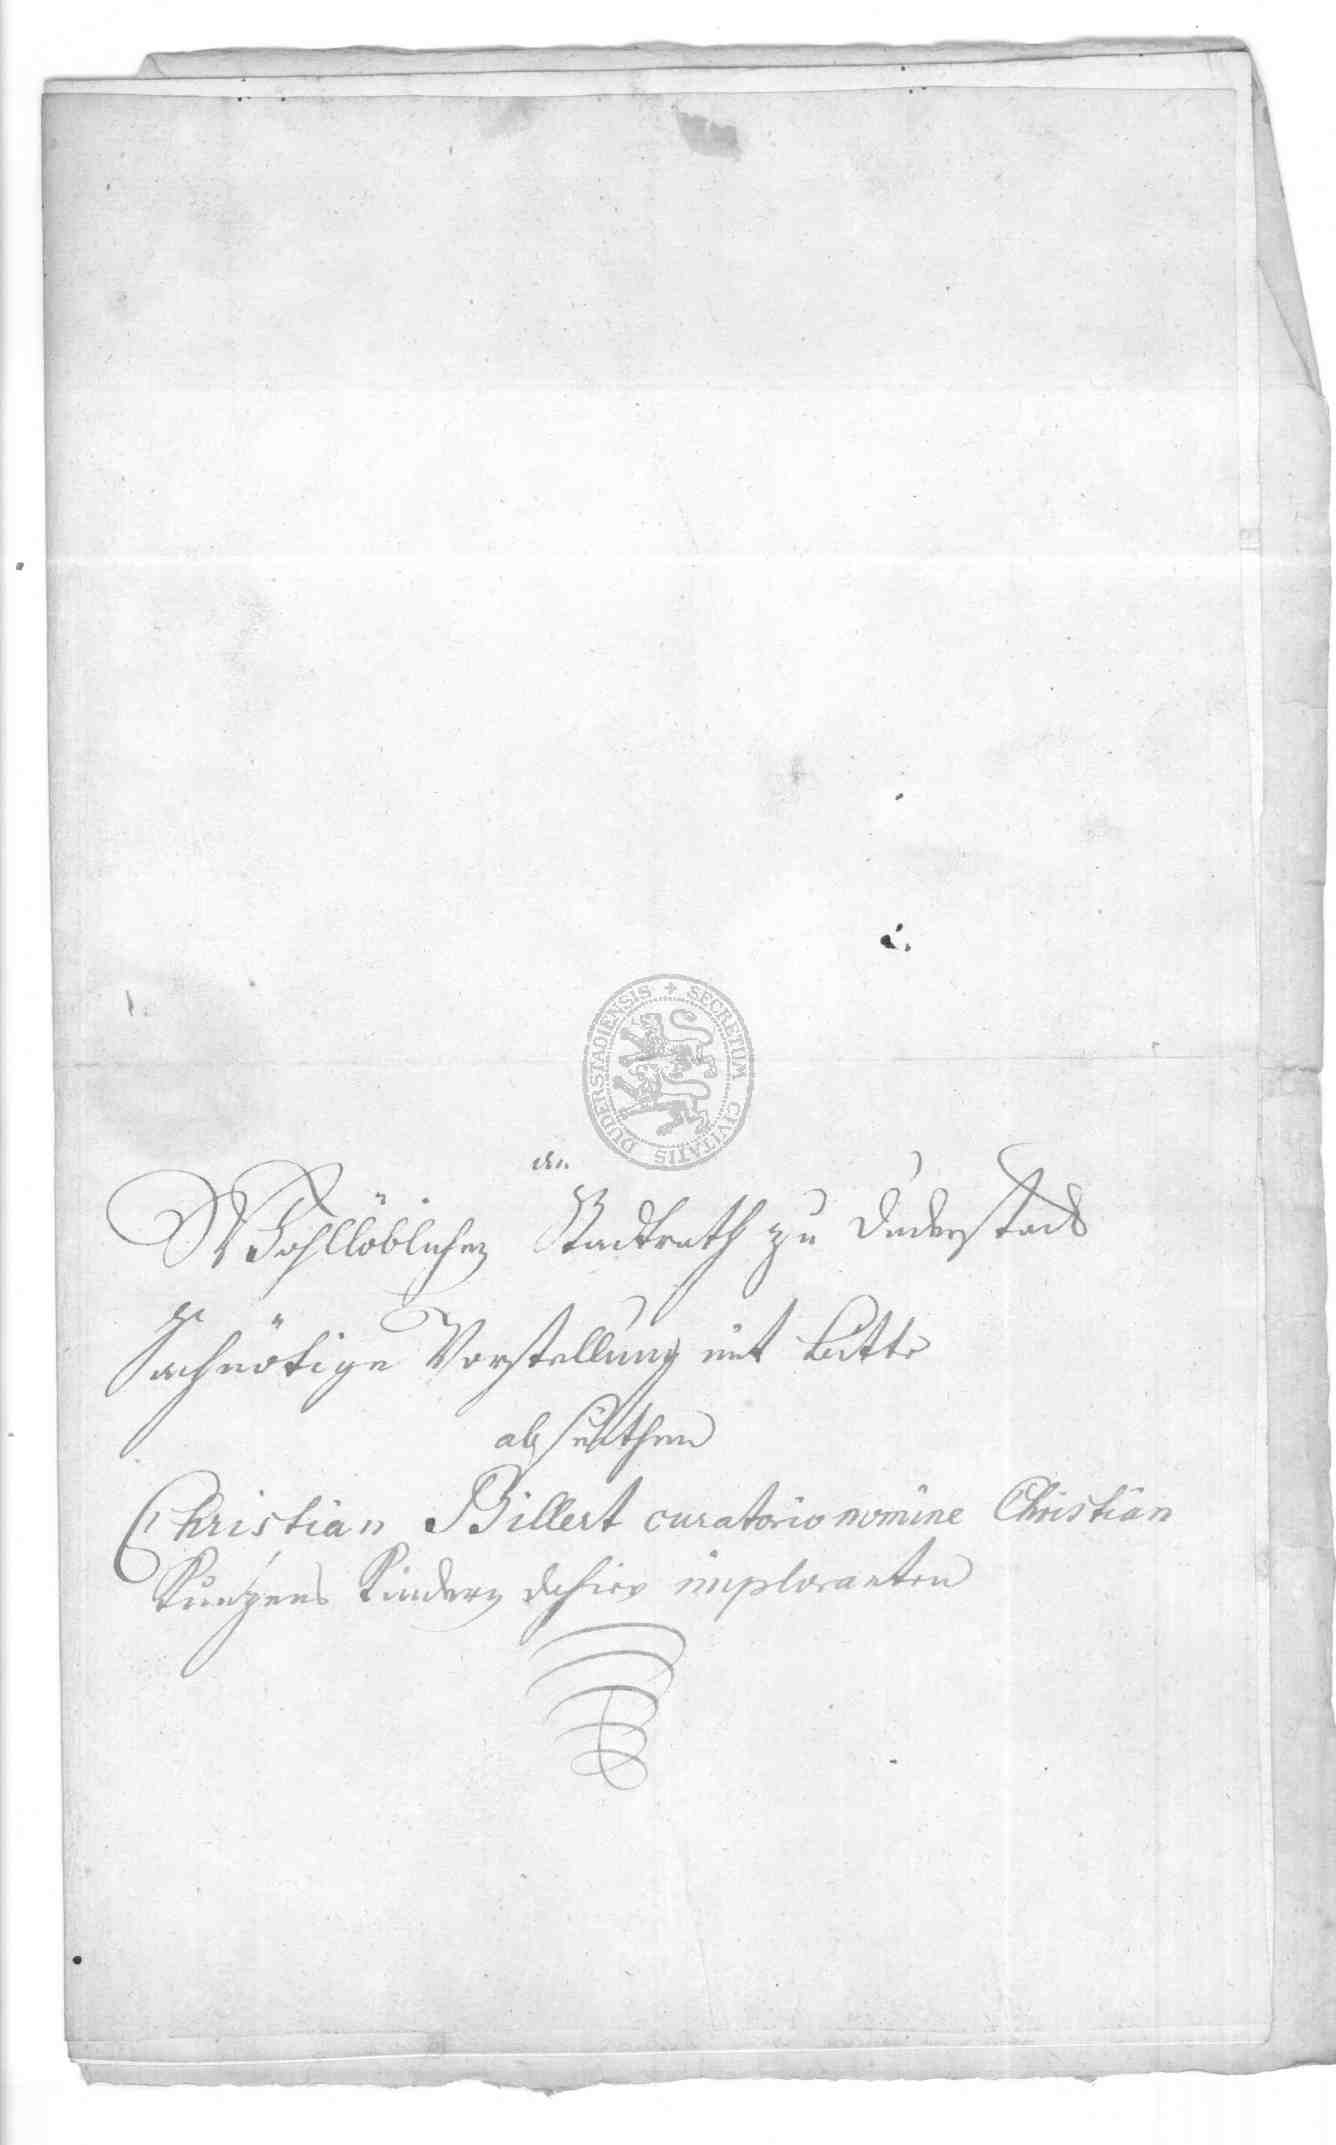 SECRETUM CIVITATIS DUDERSTADIENSIS
an
Wohllöblichen Stadtrath zu Duderstadt
Sachnötige Vorstellung mit bitte
ab seithen
Christian Billert curatorio nomine Christian
Kuntzens Kindern dahier imploranten